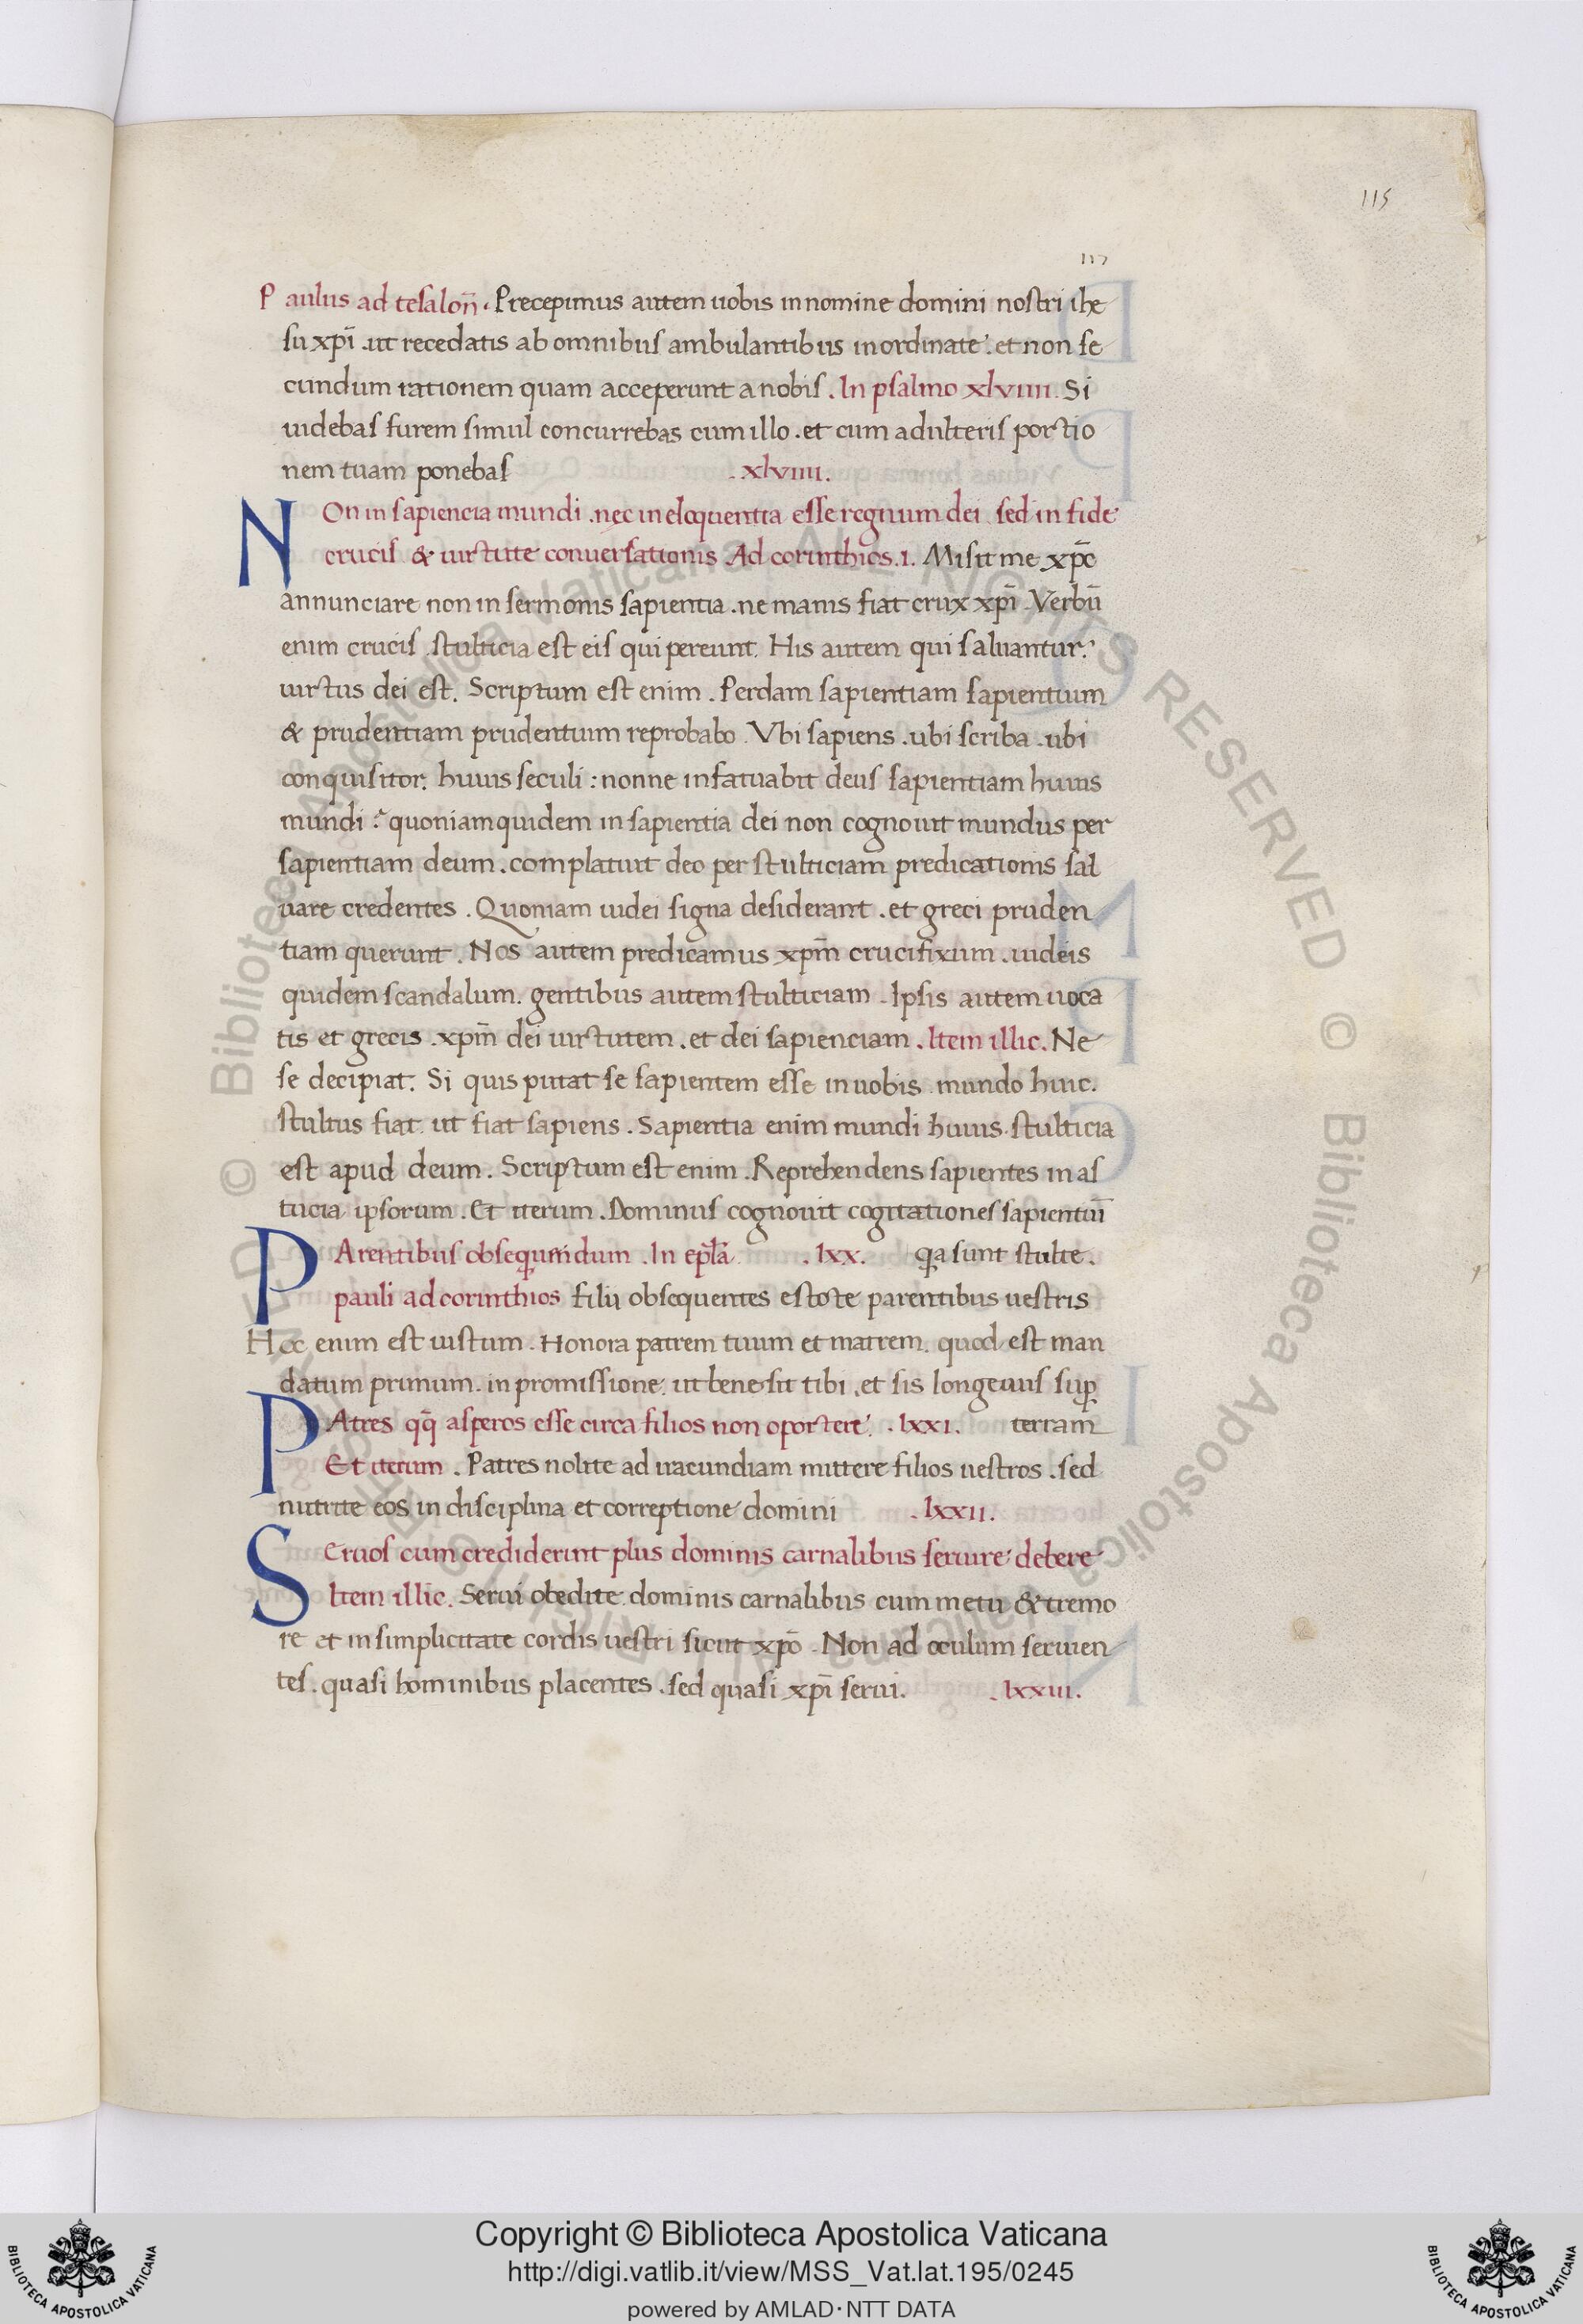 115
117
Paulus ad tesaloñ. Precepimus autem uobis in nomine domini nostri ihe
su xpi̅ .ut recedatis ab omnibus ambulantibus inordinate. et non se
cundum rationem quam acceperunt a nobis. In psalmo xlviiii. Si
uidebas furem simul concurrebas cum illo .et cum adulteris portio
nem tuam ponebas .xlviiii.
NOn in sapiencia mundi .nec in eloquentia esse regnum dei .sed in fide
crucis & uirtute conuersationis Ad corinthios.1. Misit me xpc̅
annunciare non in sermonis sapientia .ne manis fiat crux xpi̅ .Verbū
enim crucis .stulticia est eis qui pereunt. His autem qui saluantur.
uirtus dei est. Scriptum est enim .Perdam sapientiam sapientium
& prudentiam prudentium reprobabo .Vbi sapiens .ubi scriba .ubi
conquisitor. huius seculi : nonne infatuabit deus sapientiam huius
mundi : quoniam quidem in sapientia dei non cognouit mundus per
sapientiam deum .complatuit deo per stulticiam predicationis sal
uare credentes .Quoniam iudei signa desiderant .et greci pruden
tiam querunt .Nos autem predicamus xpm̅ crucifixum .iudeis
quidem scandalum. gentibus autem stulticiam .Ipsis autem uoca
tis et grecis .xpm̅ dei uirtutem .et dei sapienciam .Item illic. Ne
se decipiat. Si quis putat se sapientem esse in uobis .mundo huic.
stultus fiat. ut fiat sapiens. Sapientia enim mundi huius .stulticia
est apud deum. Scriptum est enim .Reprehendens sapientes in as
tucia ipsorum .Et iterum .Dominus cognouit cogitationes sapientiū
PArentibus obsequendum .In epl̅a .lxx. qa sunt stulte.
pauli ad corinthios filii obsequentes estote parentibus uestris
Hoc enim est iustum .Honora patrem tuum et matrem. quod est man
datum primum. in promissione. ut bene sit tibi .et sis longeuus sup̱
PAtres qq̅ asperos esse circa filios non oportere. .lxxi. terram
Et iterum .Patres nolite ad iracundiam mittere filios uestros .sed
nutrite eos in disciplina et correptione domini .lxxii.
SEruos cum crediderint plus dominis carnalibus seruire debere
Item illic. Serui obedite dominis carnalibus cum metu & tremo
re et in simplicitate cordis uestri sicut xpo̅ .Non ad oculum seruien
tes .quasi hominibus placentes .sed quasi xpi̅ serui. .lxxiii.
© Biblioteca Apostolica Vaticana ALL RIGHTS RESERVED
© Biblioteca Apostolica Vaticana ALL RIGHTS RESERVED
Copyright © Biblioteca Apostolica Vaticana
http://digi.vatlib.it/view/MSS_Vat.lat.195/0245
powered by AMLAD·NTT DATA
BIBLIOTECA APOSTOLICA VATICANA
BIBLIOTECA APOSTOLICA VATICANA